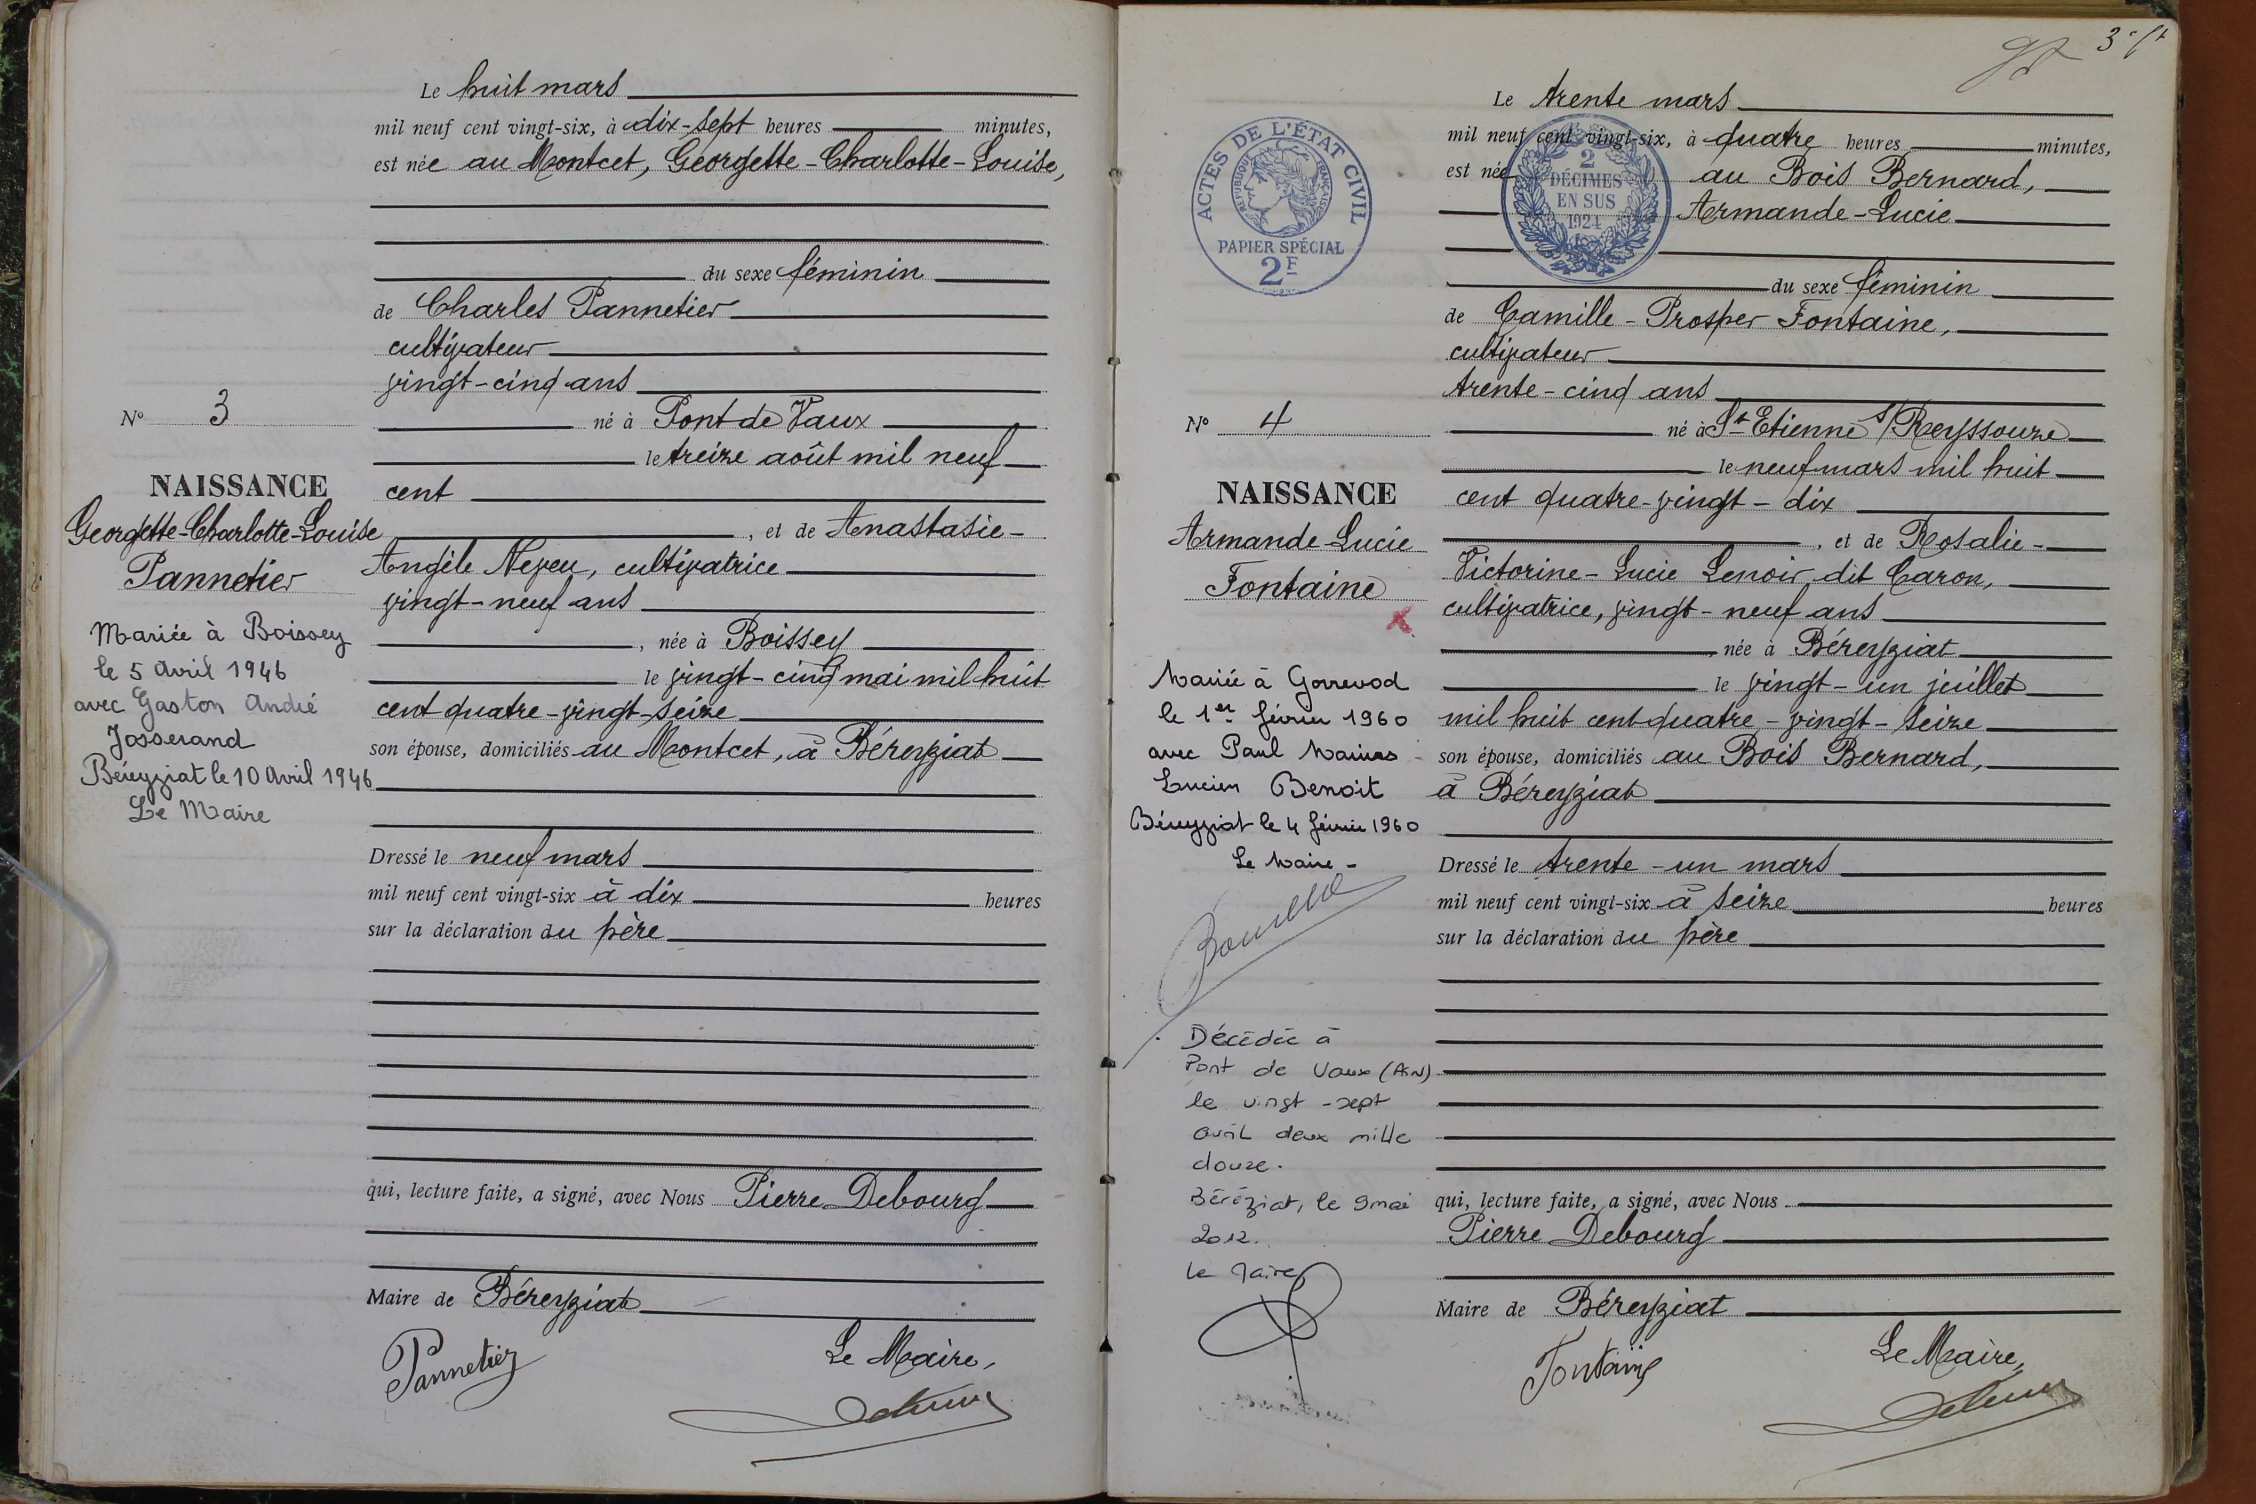 Le huit mars
mil neuf cent vingt-six, à dix-sept heures minutes,
est née au Montcet, Georgette-Charlotte-Louise,
du sexe féminin
de Charles Pannetier
cultivateur
vingt-cinq ans
né à Pont de Vaux
le treize août mil neuf
cent
, et de Anastasie-
Angèle Neveu, cultivatrice
vingt-neuf ans
, née à Boissey
le vingt-cinq mai mil huit
cent quatre-vingt-seize
son épouse, domiciliés au Montcet, à Béreyziat
Dressé le neuf mars
mil neuf cent vingt-six à dix heures
sur la déclaration du père
qui, lecture faite, a signé, avec Nous Pierre Debourg
Maire de Béreyziat
Pannetier
Le Maire,
N° 3
NAISSANCE
Georgette-Charlotte-Louise
Pannetier
Mariée à Boissey
le 5 Avril 1946
avec Gaston André
Josserand
Béreyziat le 10 Avril 1946
Le Maire
ACTES DE L'ÉTAT CIVIL
RÉPUBLIQUE FRANÇAISE
PAPIER SPÉCIAL
2F
2
DÉCIMES
EN SUS
1924
Le trente mars
mil neuf cent vingt-six, à quatre heures minutes,
est née au Bois Bernard,
Armande-Lucie
du sexe féminin
de Camille-Prosper Fontaine,
cultivateur
trente-cinq ans
né à St Etienne s/Reyssouze
le neuf mars mil huit
cent quatre-vingt-dix
, et de Rosalie-
Victorine-Lucie Lenoir dit Caron,
cultivatrice, vingt-neuf ans
née à Béreyziat
le vingt-un juillet
mil huit cent quatre-vingt-seize
son épouse, domiciliés au Bois Bernard,
à Béreyziat
Dressé le trente-un mars
mil neuf cent vingt-six à seize heures
sur la déclaration du père
qui, lecture faite, a signé, avec Nous
Pierre Debourg
Maire de Béreyziat
Fontaine
Le Maire,
N° 4
NAISSANCE
Armande-Lucie
Fontaine
Mariée à Gorrevod
le 1er février 1960
avec Paul Marius
Lucien Benoit
Béreyziat le 4 février 1960
Le Maire -
Décédée à
Pont de Vaux (Ain)
le vingt-sept
avril deux mille
douze.
Béréziat, le 9 mai
2012.
Le Maire